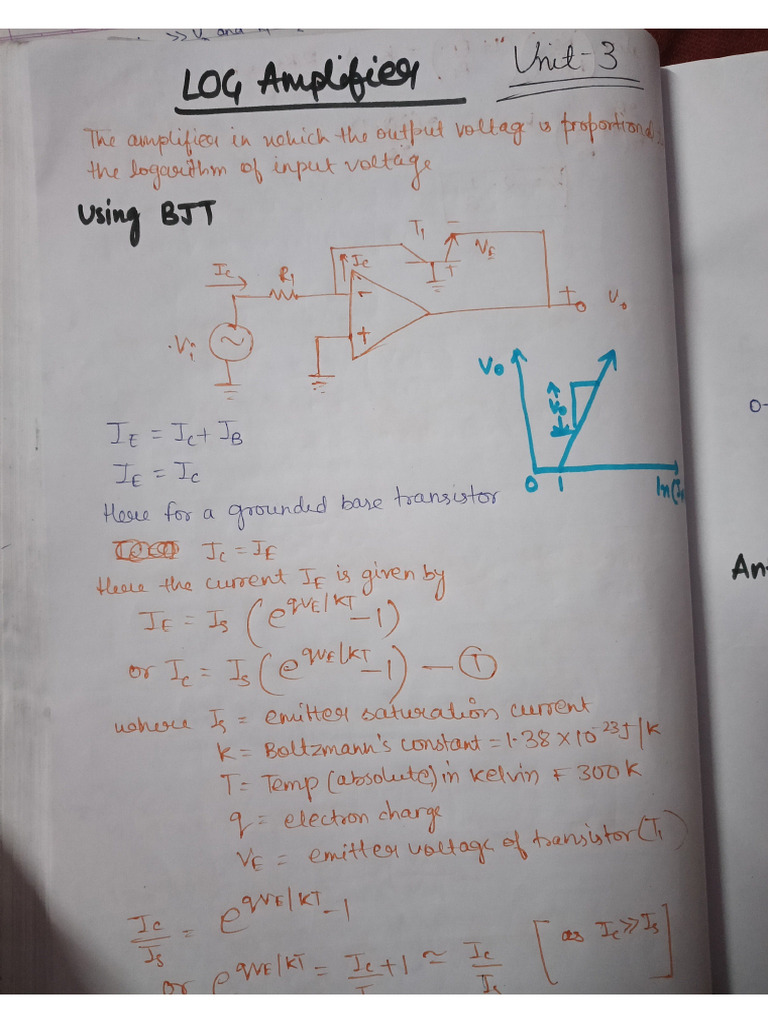 >> V₀ and
LOG Amplifier
Unit-3
The amplifier in which the output voltag is proportional
the logarithm of input voltage
Using BJT
T₁
-
Ic
R₁
Ic
VE
+
-
+
+
V₀
Vi
V₀
V₀
0
1
ln(
IE = Ic + IB
IE = Ic
Here for a grounded base transistor
Ic = IE
Here the current IE is given by
IE = Is (e^qVE/KT - 1)
or Ic = Is (e^qVE/KT - 1) — ①
where Is = emitter saturation current
K = Boltzmann's constant = 1.38 × 10^-23 J/K
T = Temp (absolute) in kelvin = 300 K
q = electron charge
VE = emitter voltage of transistor (T₁)
Ic/Is = e^qVE/KT - 1
or e^qVE/KT = Ic/I + 1 ≃ Ic/Is [as Ic >> Is]
0-
An